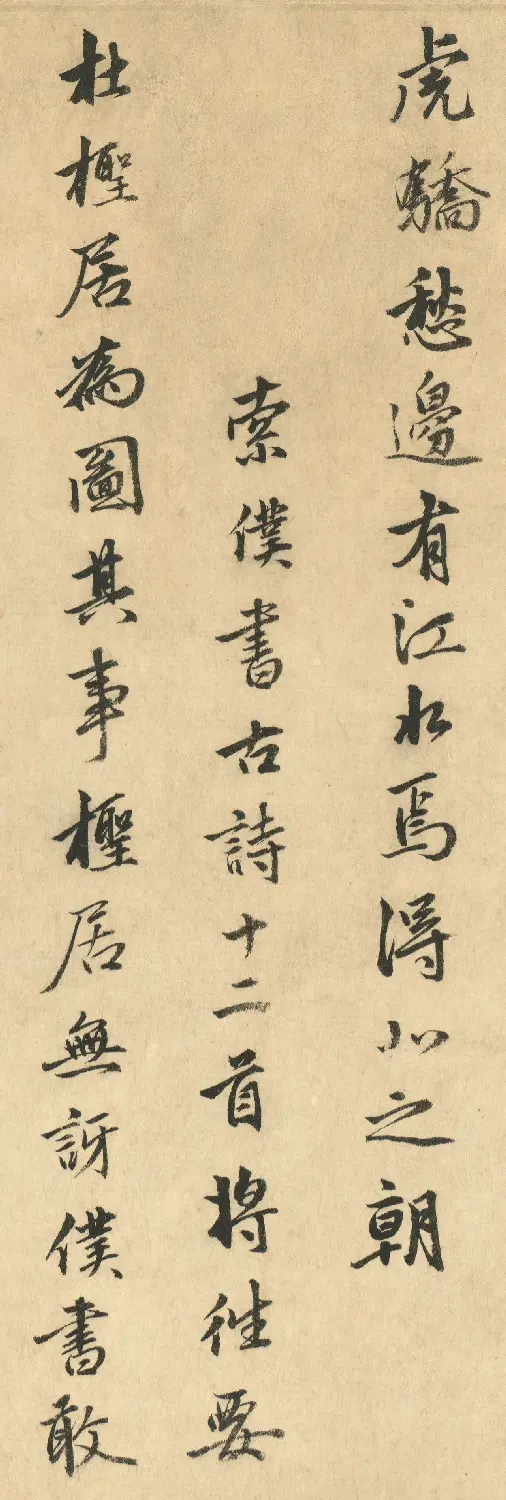 虎驕愁邊有江水焉得北之朝
索僕書古詩十二首將往要
杜檉居為圖其事檉居無訝僕書敢